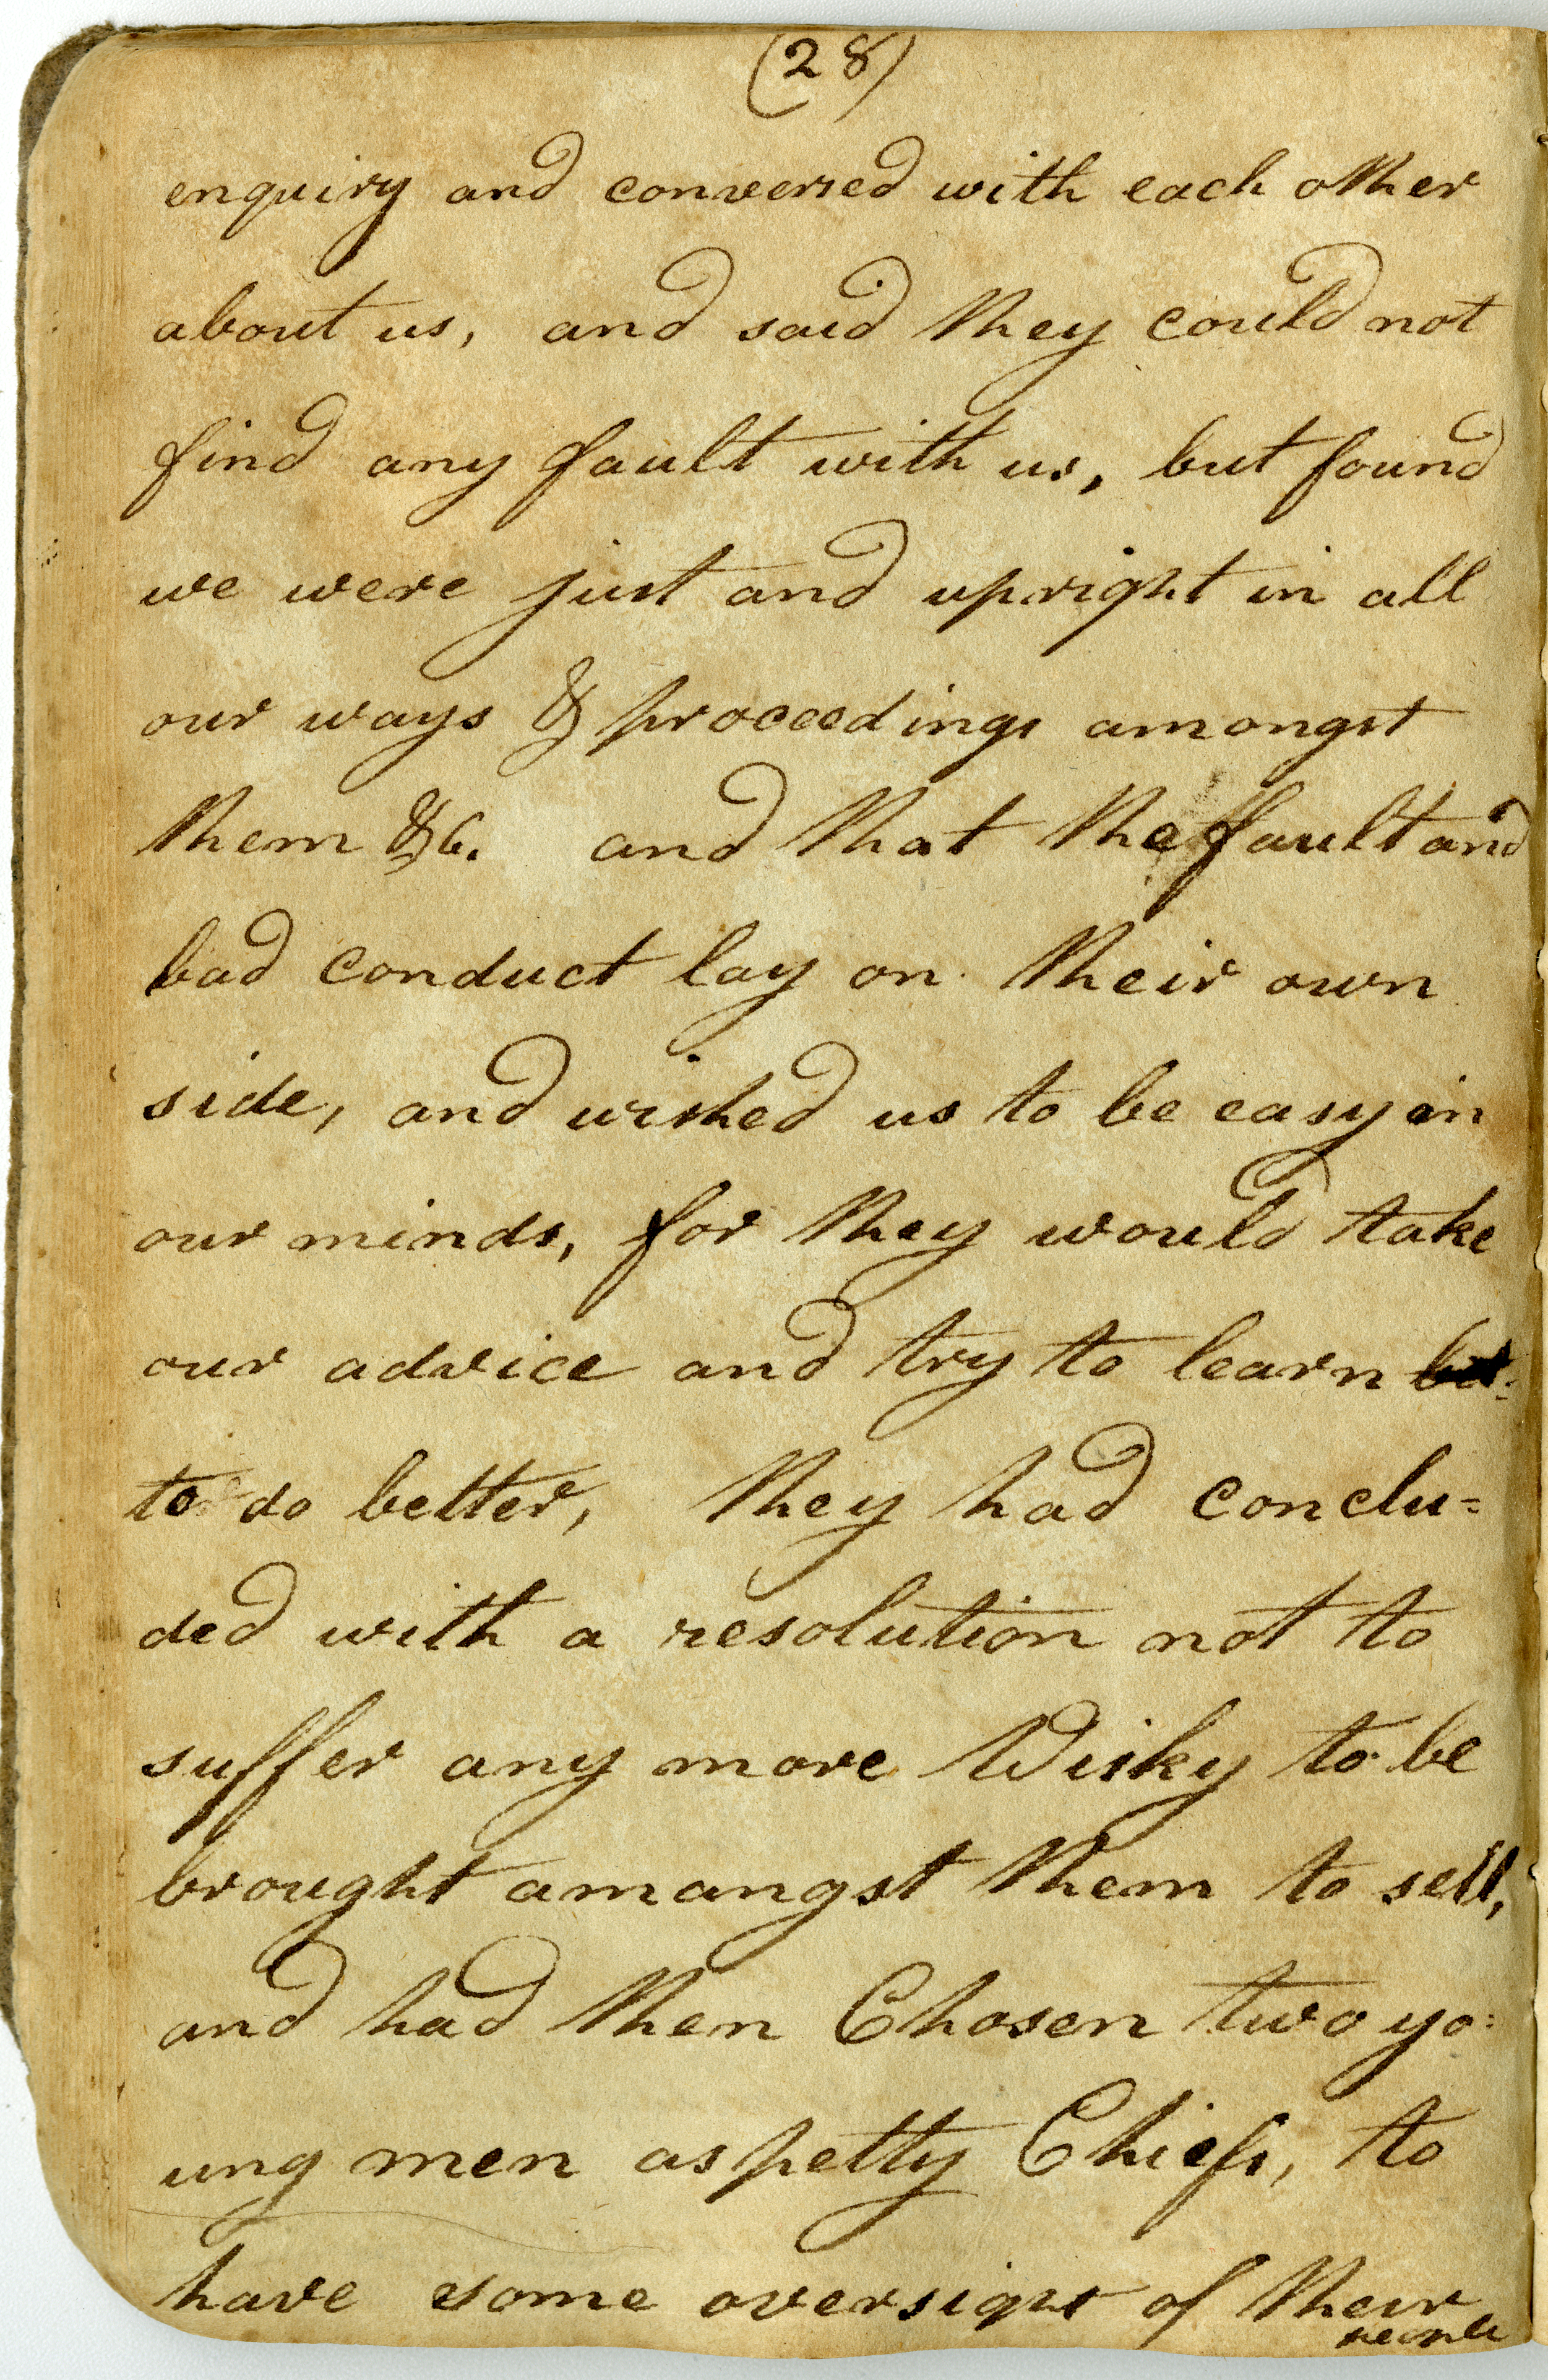 (28)
enquiry and conversed with each other
about us, and said they could not
find any fault with us, but found
we were just and upright in all
our ways & proceedings amongst
them &c. and that the fault and
bad conduct lay on their own
side, and wished us to be easy in
our minds, for they would take
our advice and try to learn
to do better, they had conclu=
ded with a resolution not to
suffer any more Wisky to be
brought amangst them to sell,
and had then Chosen two yo=
ung men as petty Chiefs, to
have some oversight of their
people